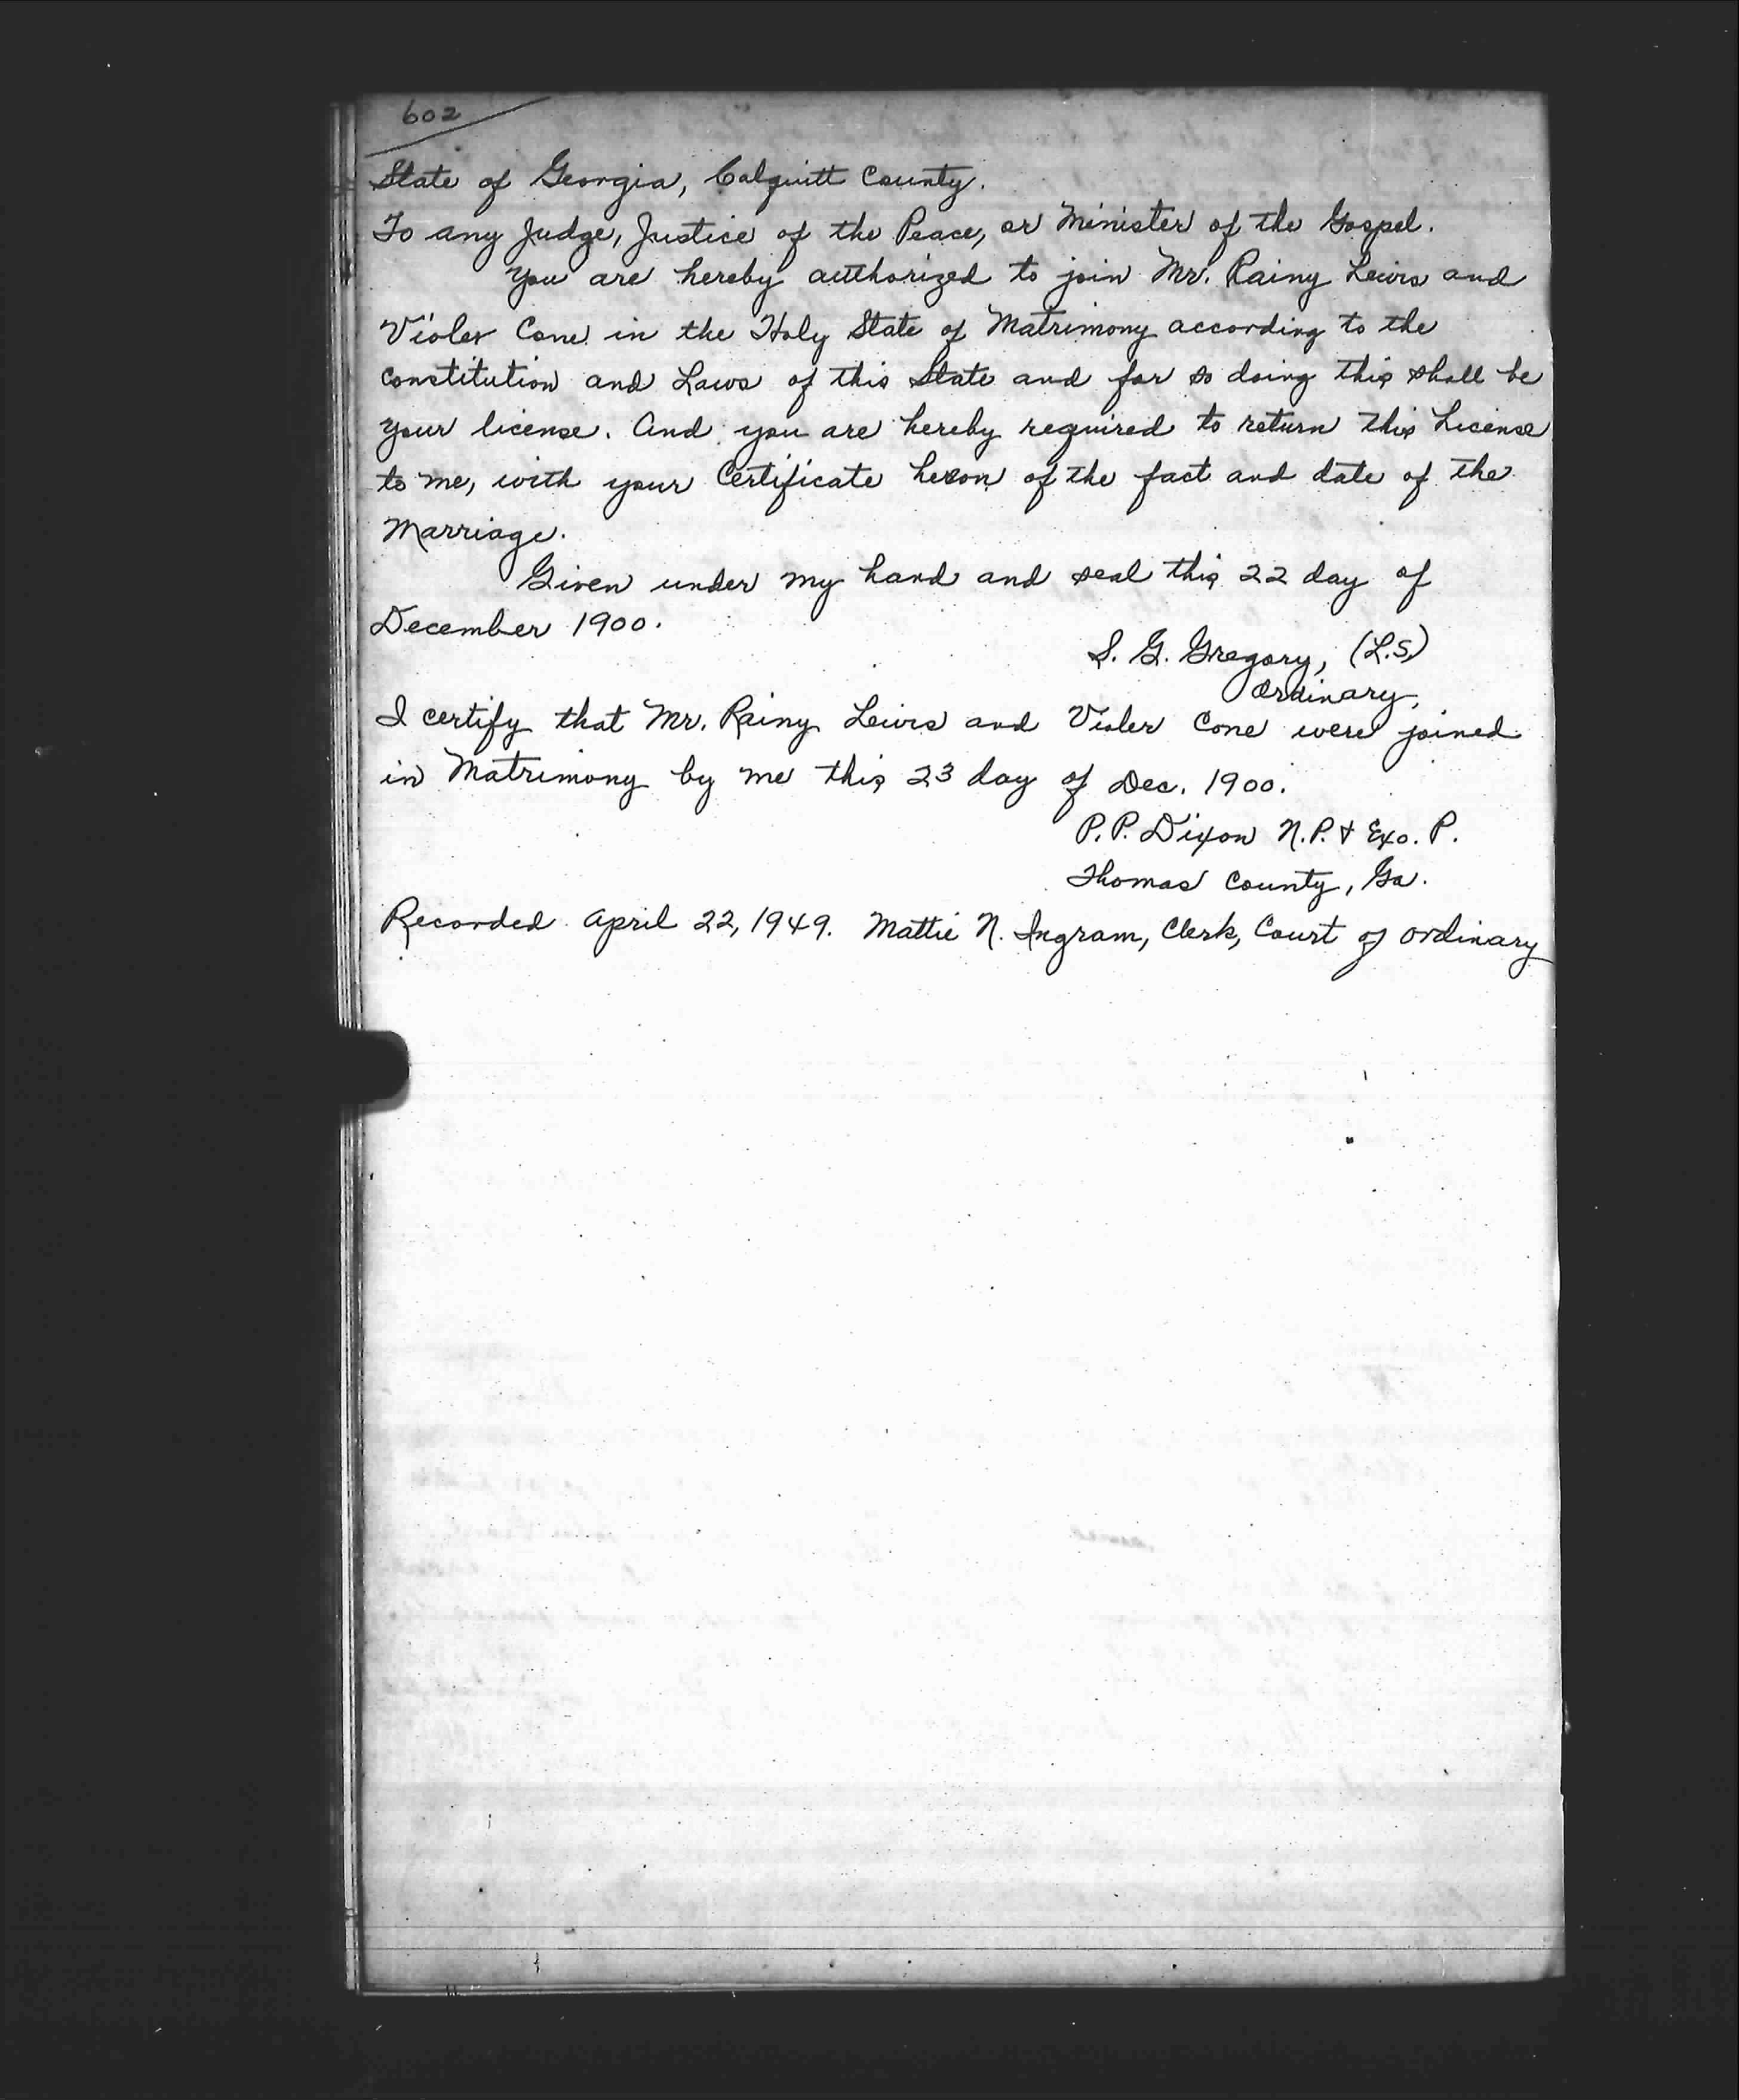 602
State of Georgia, Colquitt County.
To any Judge, Justice of the Peace, or Minister of the Gospel.
You are hereby authorized to join Mr. Rainy Lewis and
Violer Cone in the Holy State of Matrimony according to the
constitution and Laws of this State and for so doing this shall be
your license. And you are hereby required to return this License
to me, with your Certificate hereon of the fact and date of the
Marriage.
Given under my hand and seal this 22 day of
December 1900.
S. G. Gregory, (L.S.)
Ordinary,
I certify that Mr. Rainy Lewis and Violer Cone were joined
in Matrimony by me this 23 day of Dec. 1900.
P.P. Dixon N.P. & Exo. P.
Thomas County, Ga.
Recorded April 22, 1949. Mattie N. Ingram, Clerk, Court of Ordinary